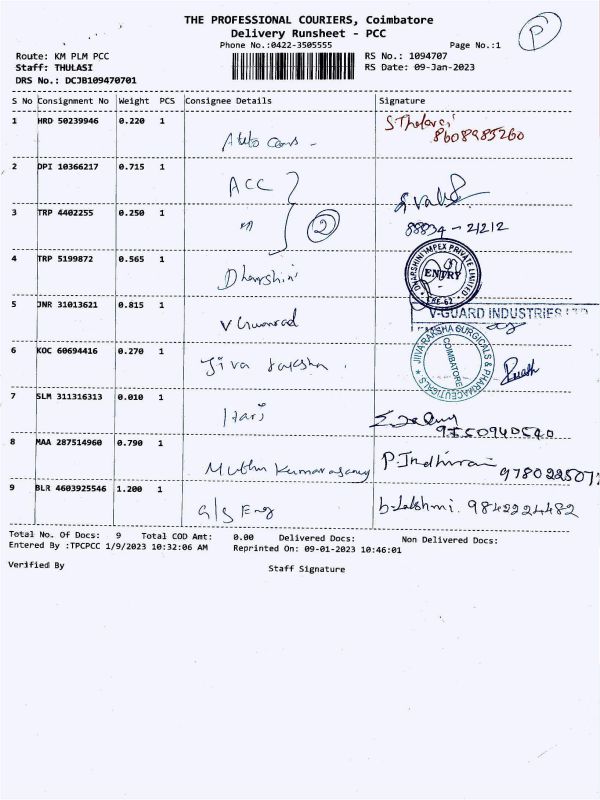 THE PROFESSIONAL COURIERS, Coimbatore
Delivery Runsheet - PCC
P
Phone No.:0422-3505555 Page No.:1
Route: KM PLM PCC RS No.: 1094707
Staff: THULASI RS Date: 09-Jan-2023
DRS No.: DCJB109470701
S No Consignment No Weight PCS Consignee Details Signature
1 HRD 50239946 0.220 1
Auto Cars - 8608985260
2 DPI 10366217 0.715 1
ACC
3 TRP 4402255 0.250 1
2 88834-21212
4 TRP 5199872 0.565 1
Dharshini
DHARSHINI IMPEX PRIVATE LIMITED
ENTRY
5 JNR 31013621 0.815 1
V-GUARD INDUSTRIES LTD
V Guard
6 KOC 60694416 0.270 1
Jiva raksha
JIIVA RAKSHA SURGICALS & PHARMACEUTICALS
COIMBATORE
7 SLM 311316313 0.010 1
Hari
8 MAA 287514960 0.790 1
Muthu Kumarasamy P. Indhirani
9 BLR 4603925546 1.200 1
G/S Eng b. Lakshmi. 9842224482
Total No. Of Docs: 9 Total COD Amt: 0.00 Delivered Docs: Non Delivered Docs:
Entered By :TPCPCC 1/9/2023 10:32:06 AM Reprinted On: 09-01-2023 10:46:01
Verified By Staff Signature